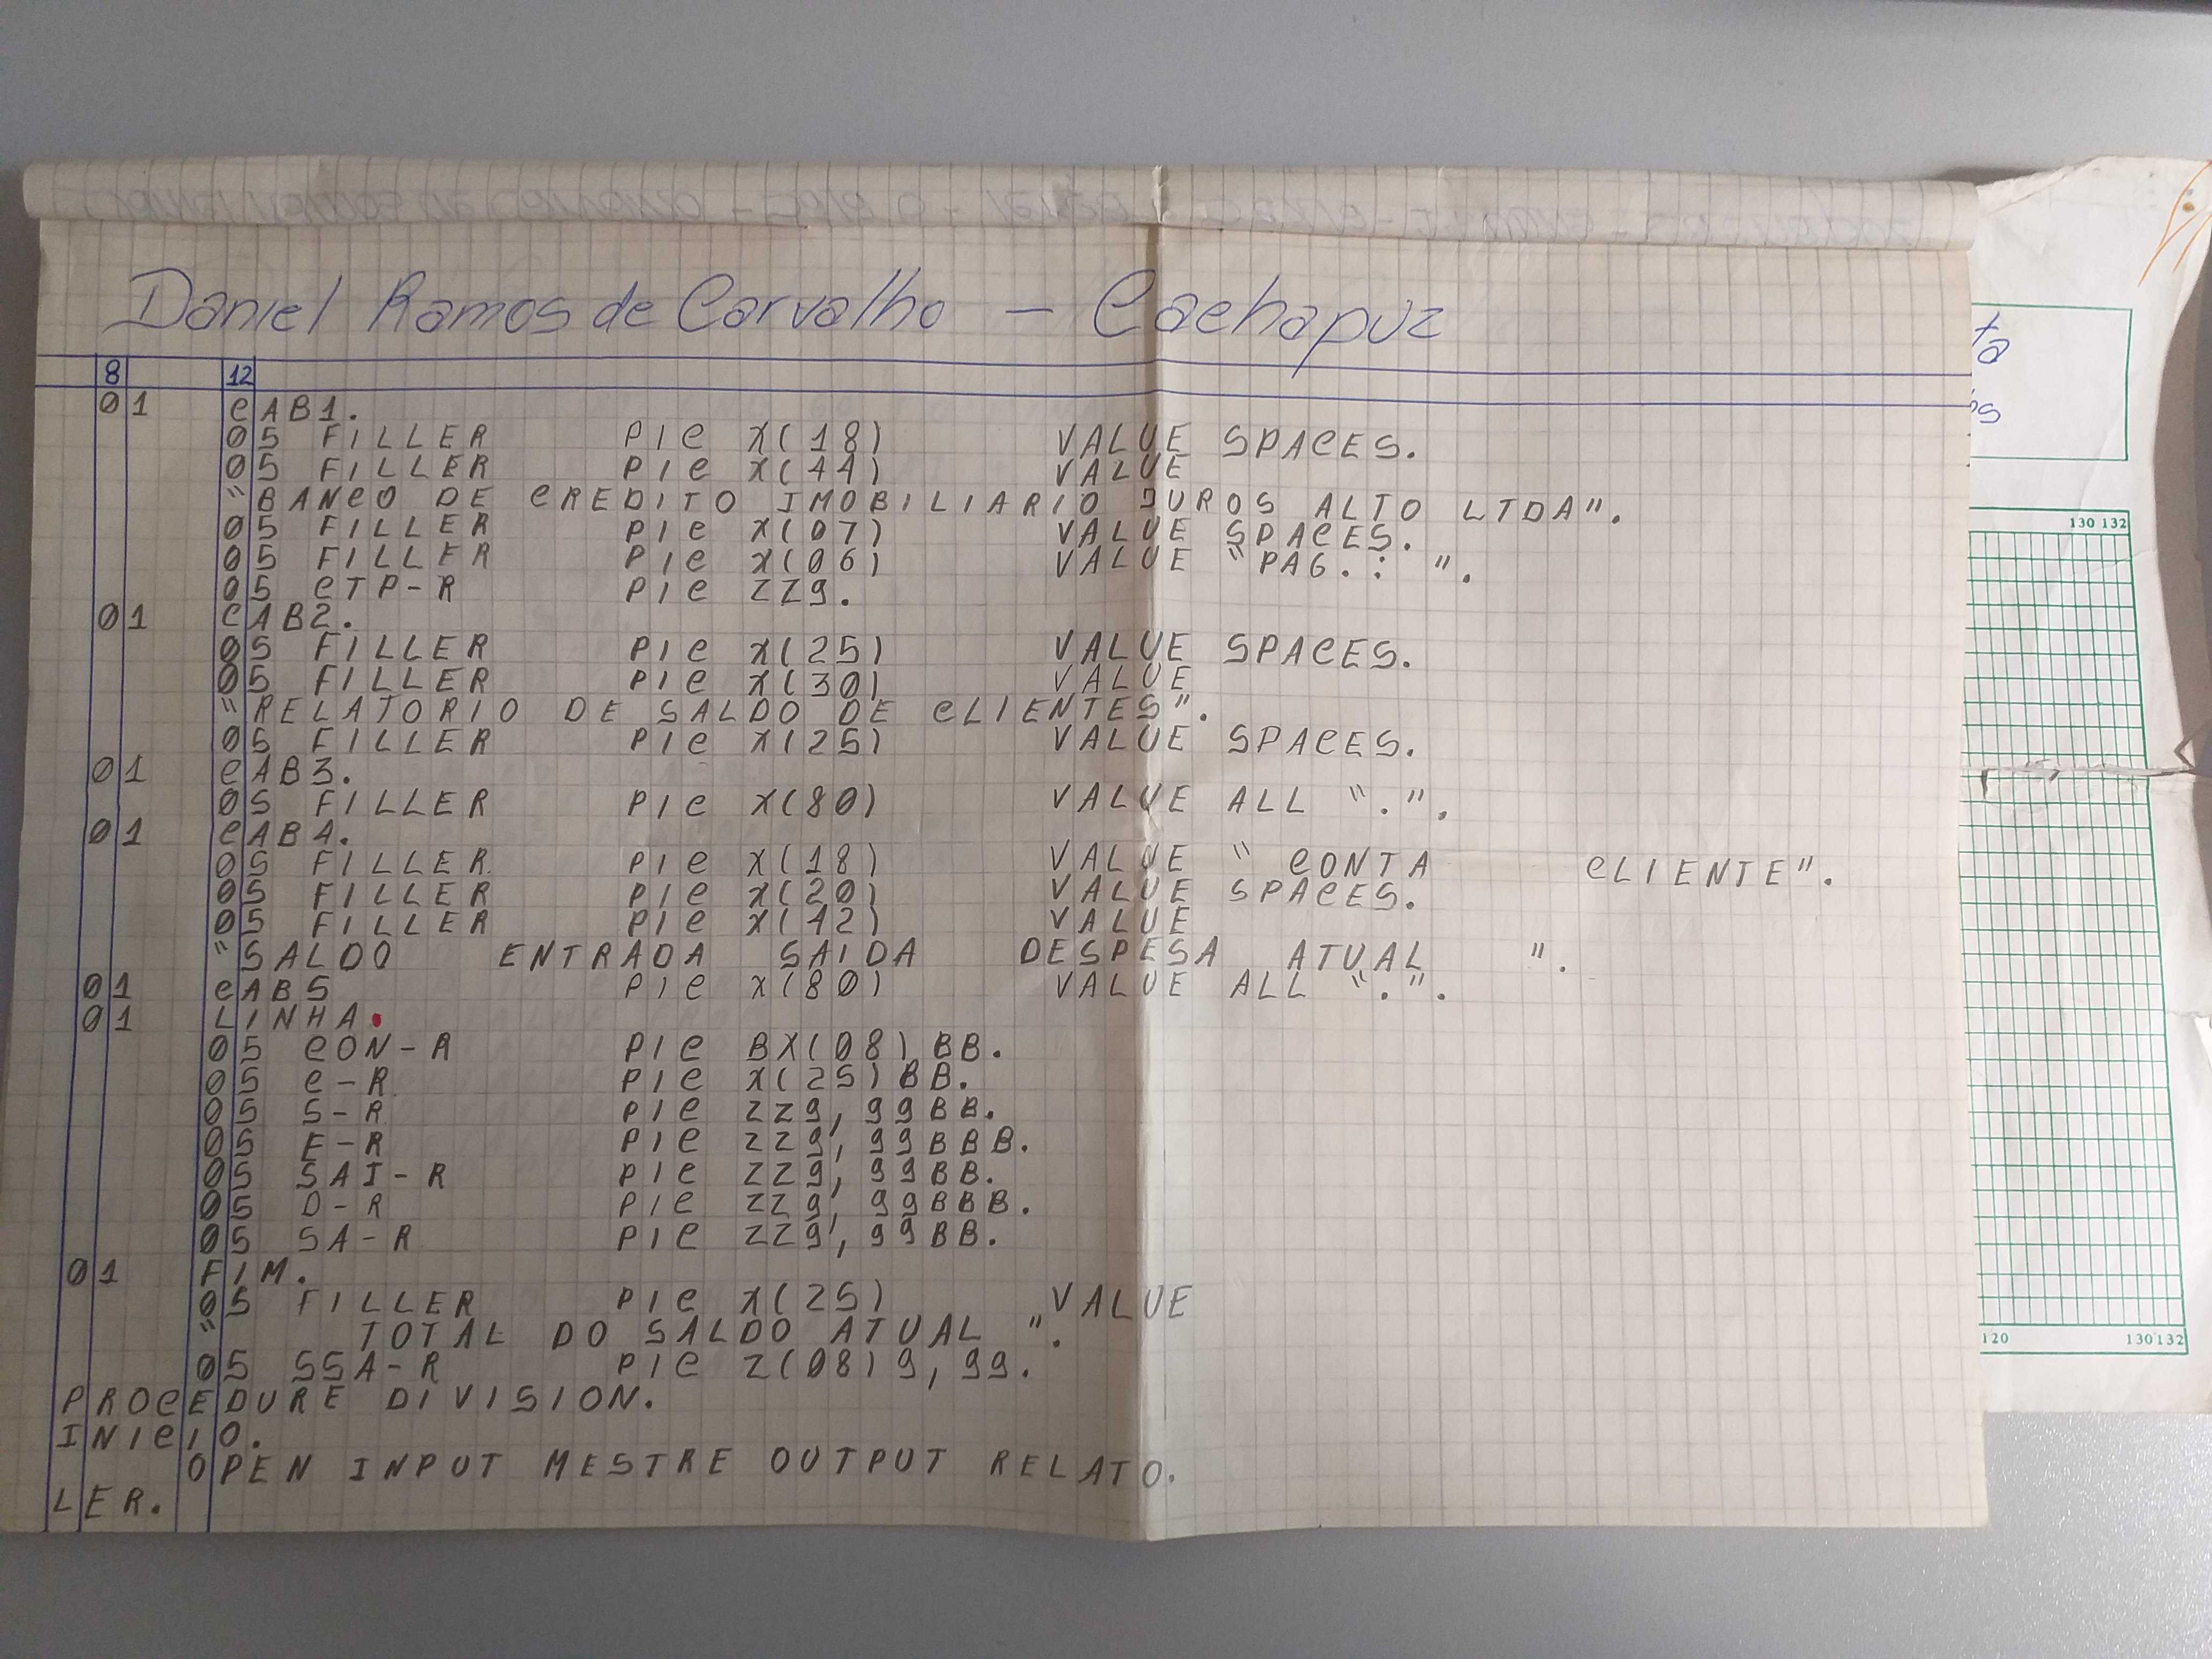 Daniel Ramos de Carvalho — Cachapuz
8 12
01 CAB1.
05 FILLER PIC X(18) VALUE SPACES.
05 FILLER PIC X(44) VALUE
"BANCO DE CREDITO IMOBILIARIO JUROS ALTO LTDA".
05 FILLER PIC X(07) VALUE SPACES.
05 FILLER PIC X(06) VALUE "PAG.: ".
05 CTP-R PIC ZZ9.
01 CAB2.
05 FILLER PIC X(25) VALUE SPACES.
05 FILLER PIC X(30) VALUE
"RELATORIO DE SALDO DE CLIENTES".
05 FILLER PIC X(25) VALUE SPACES.
01 CAB3.
05 FILLER PIC X(80) VALUE ALL ".".
01 CAB4.
05 FILLER PIC X(18) VALUE " CONTA CLIENTE".
05 FILLER PIC X(20) VALUE SPACES.
05 FILLER PIC X(42) VALUE
"SALDO ENTRADA SAIDA DESPESA ATUAL ".
01 CAB5 PIC X(80) VALUE ALL ".".
01 LINHA.
05 CON-R PIC BX(08)BB.
05 C-R PIC X(25)BB.
05 S-R PIC ZZ9,99BB.
05 E-R PIC ZZ9,99BBB.
05 SAI-R PIC ZZ9,99BB.
05 D-R PIC ZZ9,99BBB.
05 SA-R PIC ZZ9,99BB.
01 FIM.
05 FILLER PIC X(25) VALUE
" TOTAL DO SALDO ATUAL ".
05 SSA-R PIC Z(08)9,99.
PROCEDURE DIVISION.
INICIO.
OPEN INPUT MESTRE OUTPUT RELATO.
LER.
ta
os
130 132
120 130 132